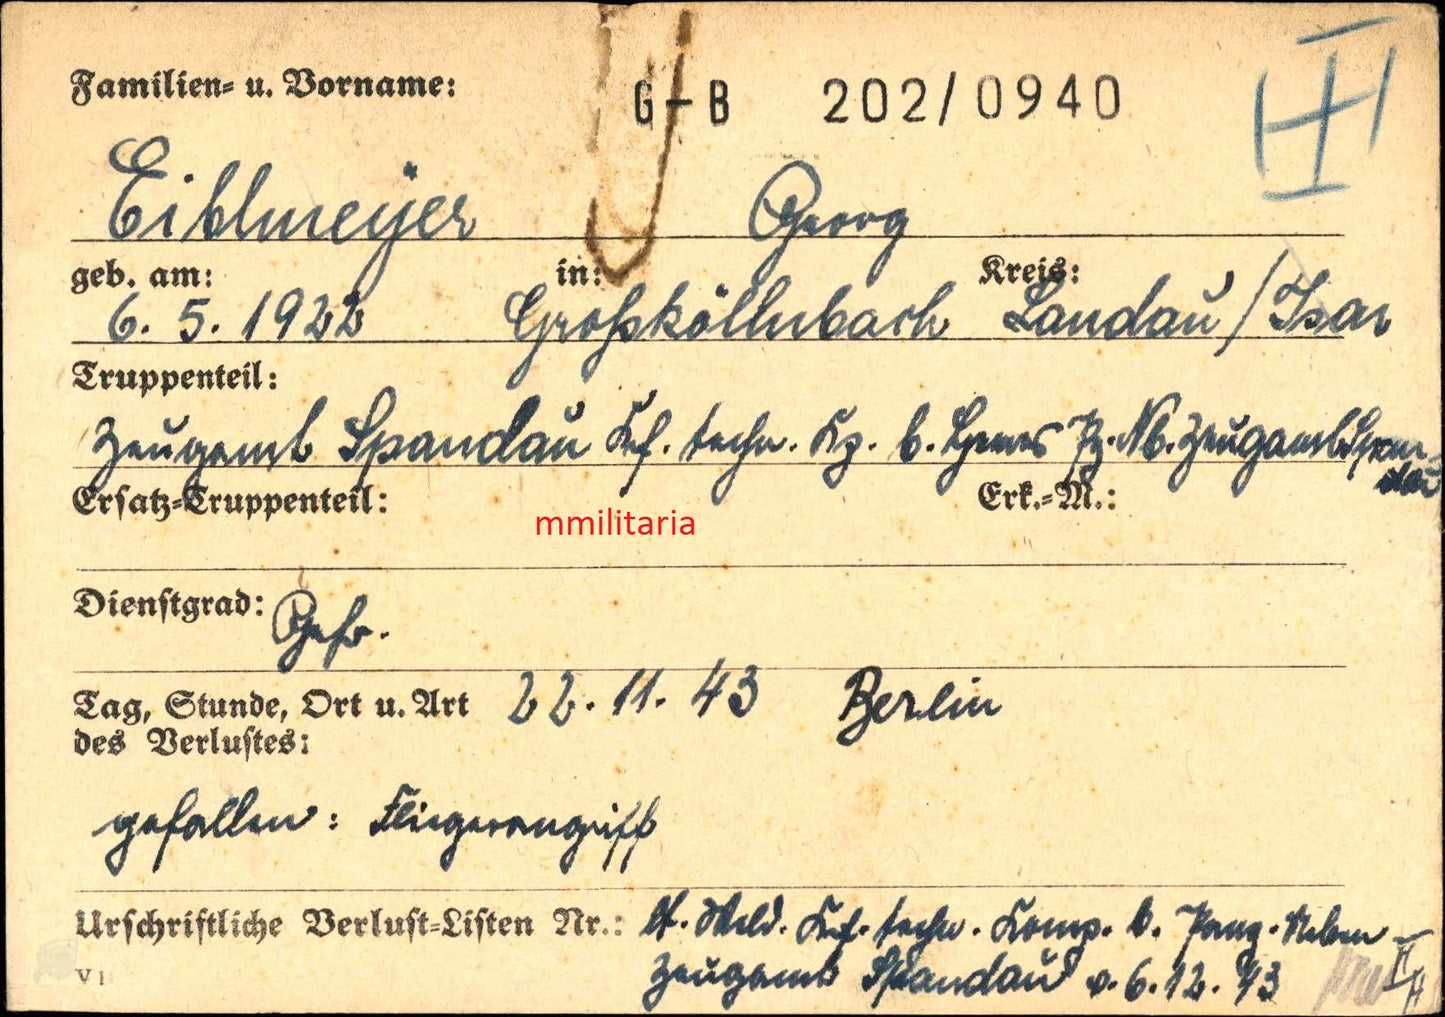 Familien- u. Vorname:
G-B 202/0940
Eiblmeyer Georg
geb. am: in: Kreis:
6. 5. 1922 Großköllnbach Landau / Isar
Truppenteil:
Zeugamt Spandau Kf. techn. Kp. b. Pz. Nb. Zeugamt Span-
dau
Ersatz-Truppenteil: Erk.-M.:
mmilitaria
Dienstgrad: Gefr.
Tag, Stunde, Ort u. Art 22. 11. 43 Berlin
des Verlustes:
gefallen: Fliegerangriff
Urschriftliche Verlust-Listen Nr.: Meld. Kf. techn. Komp. b. Panz. Neben-
V 1 Zeugamt Spandau v. 6.12.43